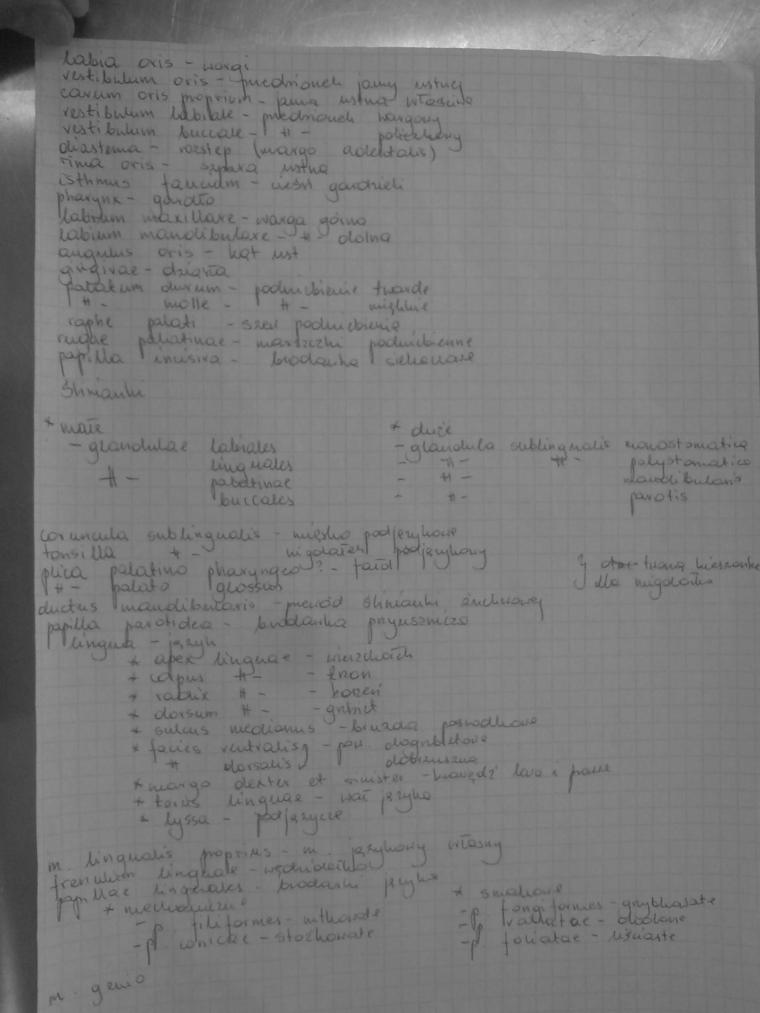 labia oris - wargi
vestibulum oris - przedsionek jamy ustnej
cavum oris proprium - jama ustna właściwa
vestibulum labiale - przedsionek wargowy
vestibulum buccale - -||- policzkowy
diastema - rozstęp (margo adentalis)
rima oris - szpara ustna
isthmus faucium - cieśń gardzieli
pharynx - gardło
labium maxillare - warga górna
labium mandibulare - -||- dolna
angulus oris - kąt ust
gingivae - dziąsła
palatum durum - podniebienie twarde
-||- molle - -||- miękkie
raphe palati - szew podniebienia
rugae palatinae - marszczki podniebienne
papilla incisiva - brodawka siekaczowa
Ślinianki
* małe
- glandulae labiales
linguales
-||- palatinae
buccales
* duże
- glandula sublingualis monostomatica
- -||- -||- polystomatica
- -||- mandibularis
- -||- parotis
caruncula sublingualis - mięsko podjęzykowe
tonsilla -||- migdałek podjęzykowy
plica palatino pharyngea ? - fałd
-||- palato glossus
} tworzą kieszonkę
dla migdałka
ductus mandibularis - przewód ślinianki żuchwowej
papilla parotidea - brodawka przyusznicza
lingua - język
* apex linguae - wierzchołek
* corpus -||- - trzon
* radix -||- - korzeń
* dorsum -||- - grzbiet
* sulcus medianus - bruzda pośrodkowa
* facies ventralis - pow. dogrzbietowa
-||- dorsalis dobrzuszna
* margo dexter et sinister - krawędź lewa i prawa
* torus linguae - wał języka
* lyssa - podjęzycze
m. lingualis proprius - m. językowy własny
frenulum linguale - wędzidełko
papillae linguales - brodawki języka
* mechaniczne
- p. filiformes - nitkowate
- p. conicae - stożkowate
* smakowe
- p. fungiformes - grzybkowate
- p. vallatae - okolone
- p. foliatae - liściaste
m. genio